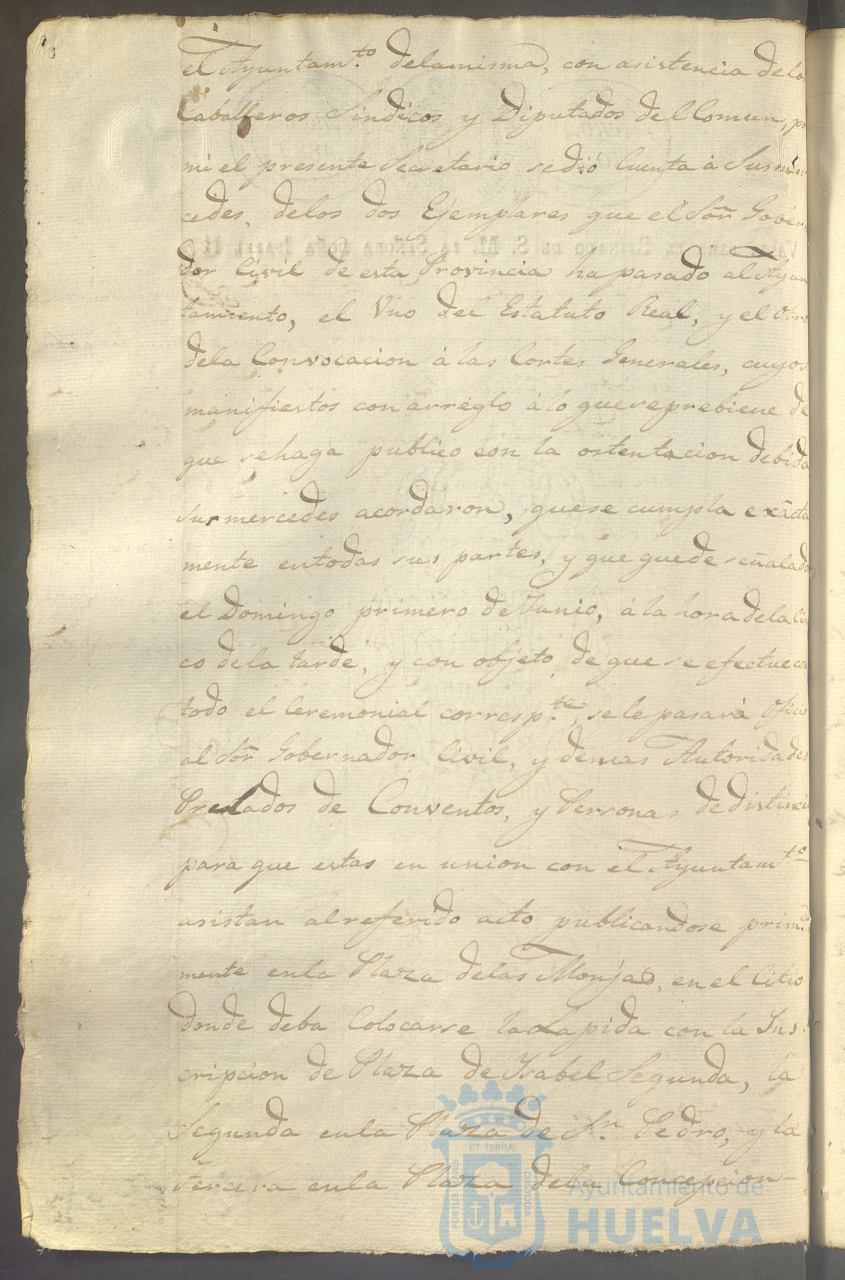 el Ayuntam.to delamisma, con asistencia de lo
Caballeros Sindicos y Diputados del Comun, po
mi el presente Secretario sedió Cuenta á Susmer
cedes, delos dos Ejemplares que el Sõr Gover
dor Civil de esta Provincia ha pasado al Ayun
tamiento, el Vno del Estatuto Real, y el Otro
dela Convocacion á las Cortes Generales, cuyos
manifiestos con arreglo álo queseprebiene de
que sehaga publico con la ostentacion debida
sus mercedes acordaron, quese cumpla exâcta
mente entodas sus partes, y que quede señalado
el Domingo primero de Junio, á la hora dela Cin
co dela tarde, y con objeto de que se efectue con
todo el Ceremonial corresp.te, sele pasará Oficio
al Sõr Gobernador Civil, y demas Autoridades
Prelados de Conventos, y Personas de distinci
para que estas en union con el Ayuntam.to
asistan alreferido acto publicandose prim.a
mente enla Plaza delas Monjas, en el Citio
donde deba Colocarse laLapida con la Ins-
cripcion de Plaza de Isabel Segunda, la
Segunda enla Plaza de Sn. Pedro, y la
tercera enla Plaza dela Concepcion-
ET TERRÆ
PORTUS
Ayuntamiento de
HUELVA